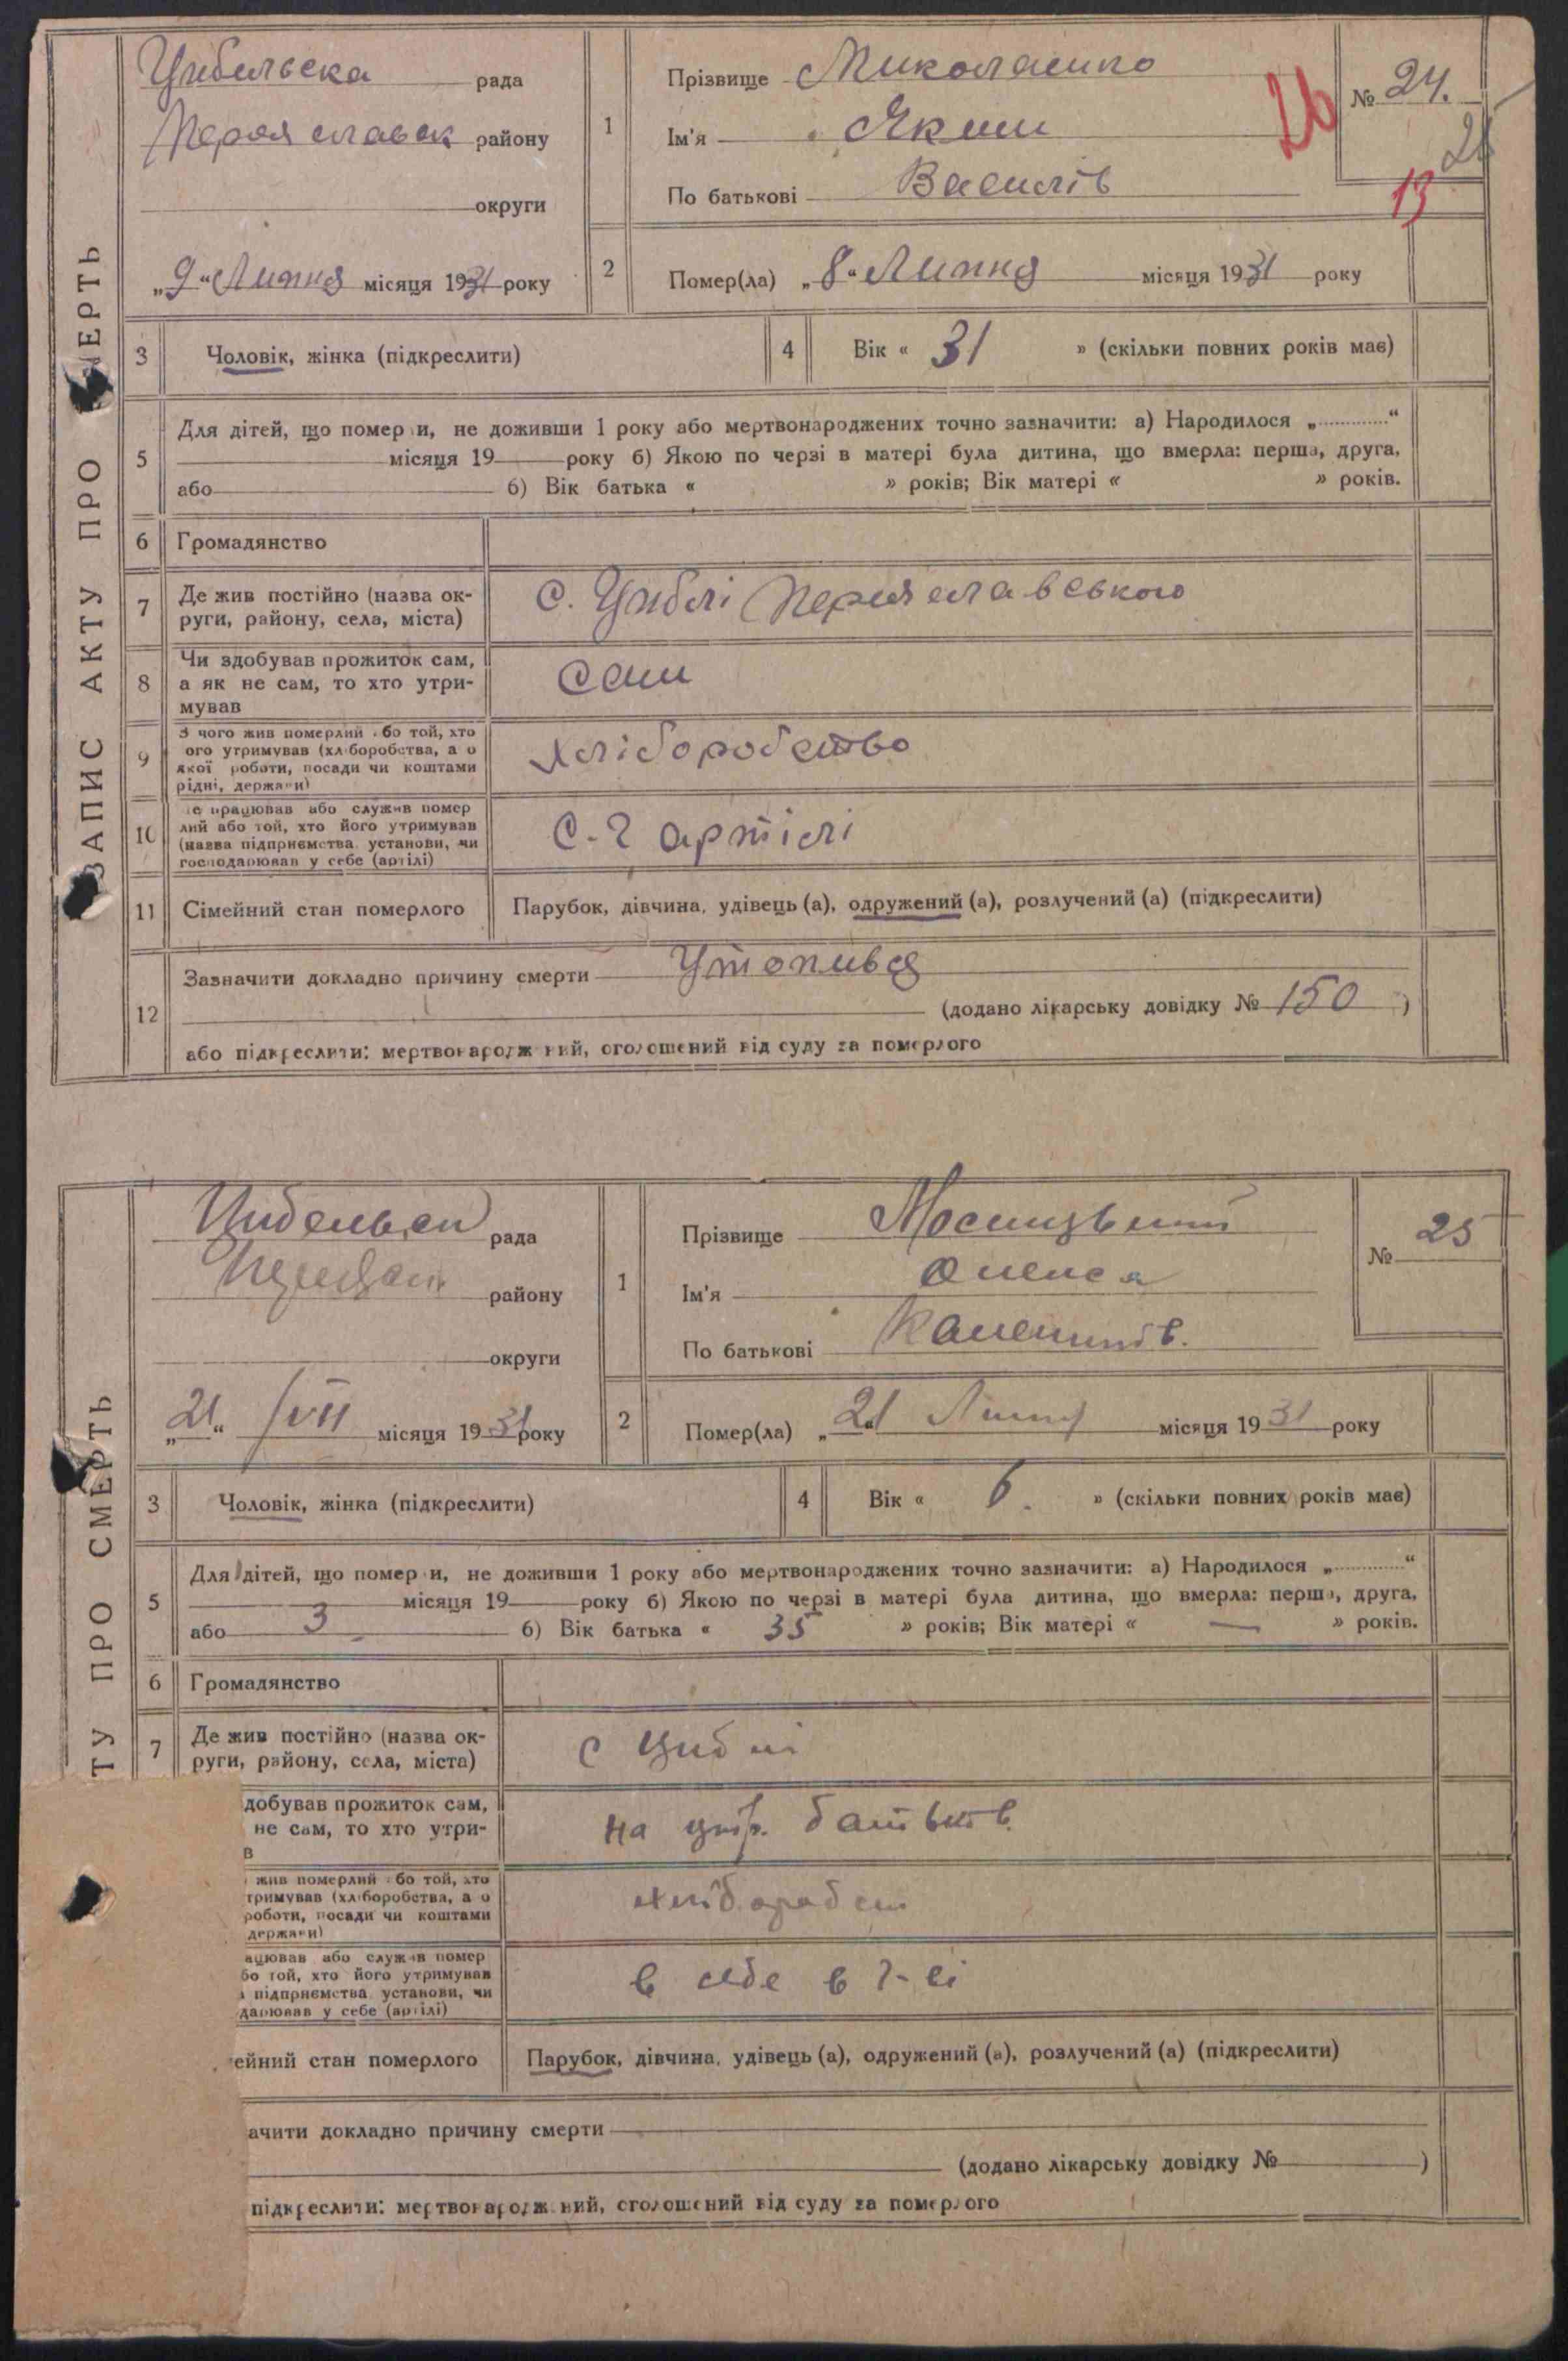 ЗАПИС АКТУ ПРО СМЕРТЬ
Цибельска рада
Переяславськ району
округи
„9“ Липня місяця 1931 року
1
Прізвище Миколаєнко
Ім'я Яким
По батькові Василів
№ 24.
26
13
2
Помер(ла) „8“ Липня місяця 1931 року
3 Чоловік, жінка (підкреслити)
4 Вік « 31 » (скільки повних років має)
5 Для дітей, що помер и, не доживши 1 року або мертвонароджених точно зазначити: а) Народилося „............“
місяця 19 року б) Якою по черзі в матері була дитина, що вмерла: перша, друга,
або б) Вік батька « » років; Вік матері « » років.
6 Громадянство
7 Де жив постійно (назва ок-
руги, району, села, міста)
с. Циблі Переяславського
8 Чи здобував прожиток сам,
а як не сам, то хто утри-
мував
сам
9 З чого жив померлий бо той, хто
ого утримував (хл боробства, а о
якої роботи, посади чи коштами
рідні, держави)
хліборобство
10 е працював або служив помер
лий або той, хто його утримував
(назва підприємства установи, чи
господарював у себе (артілі)
С-г артілі
11 Сімейний стан померлого
Парубок, дівчина, удівець (а), одружений (а), розлучений (а) (підкреслити)
12 Зазначити докладно причину смерти Утопився
(додано лікарську довідку № 150 )
або підкреслити: мертвонародж ний, оголошений від суду за померлого
ТУ ПРО СМЕРТЬ
рада
району
округи
„21“ /VII місяця 1931 року
1
Прізвище
Ім'я
По батькові
№ 25
2
Помер(ла) „21“ Липня місяця 1931 року
3 Чоловік, жінка (підкреслити)
4 Вік « 6. » (скільки повних років має)
5 Для дітей, що помер и, не доживши 1 року або мертвонароджених точно зазначити: а) Народилося „............“
місяця 19 року б) Якою по черзі в матері була дитина, що вмерла: перша, друга,
або 3 б) Вік батька « 35 » років; Вік матері « — » років.
6 Громадянство
7 Де жив постійно (назва ок-
руги, району, села, міста)
с Циблі
добував прожиток сам,
не сам, то хто утри-
в
на утр. батьків
жив померлий бо той, хто
тримував (хл боробства, а о
роботи, посади чи коштами
держави)
ацював або служив помер
бо той, хто його утримував
підприємства установи, чи
дарював у себе (артілі)
в себе в г-ві
ейний стан померлого
Парубок, дівчина, удівець (а), одружений (а), розлучений (а) (підкреслити)
ачити докладно причину смерти
(додано лікарську довідку № )
підкреслити: мертвонародж ний, оголошений від суду за померлого